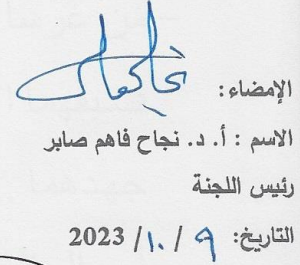 الإمضاء:
الاسم : أ. د. نجاح فاهم صابر
رئيس اللجنة
التاريخ: ٩ / ١٠ / 2023